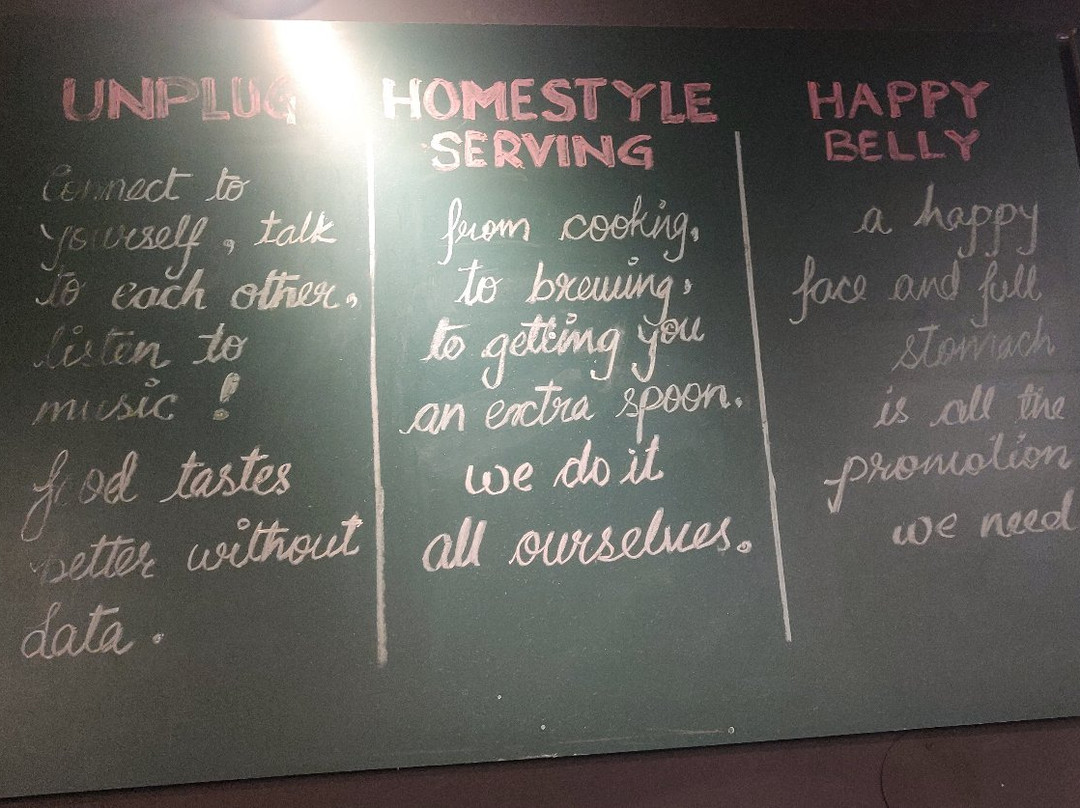 UNPLUG
Connect to
yourself, talk
to each other,
listen to
music!
food tastes
better without
data.
HOMESTYLE
SERVING
from cooking,
to brewing,
to getting you
an extra spoon.
we do it
all ourselves.
HAPPY
BELLY
a happy
face and full
stomach
is all the
promotion
we need